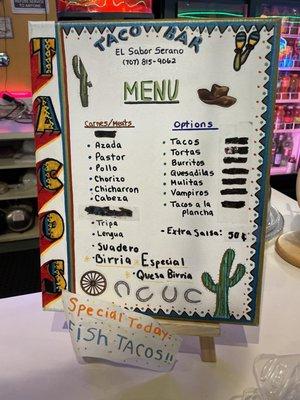 TACO BAR
El Sabor Serano
(707) 815-9062
MENU
Carnes/Meats
Azada
Pastor
Pollo
Chorizo
Chicharron
Cabeza
Tripa
Lengua
Suadero
Birria Especial
Quesa Birria
Options
Tacos
Tortas
Burritos
Quesadilas
Mulitas
Vampiros
Tacos a la
plancha
-Extra Salsa: 50¢
TACOS
Special Today
Fish TACOS!!